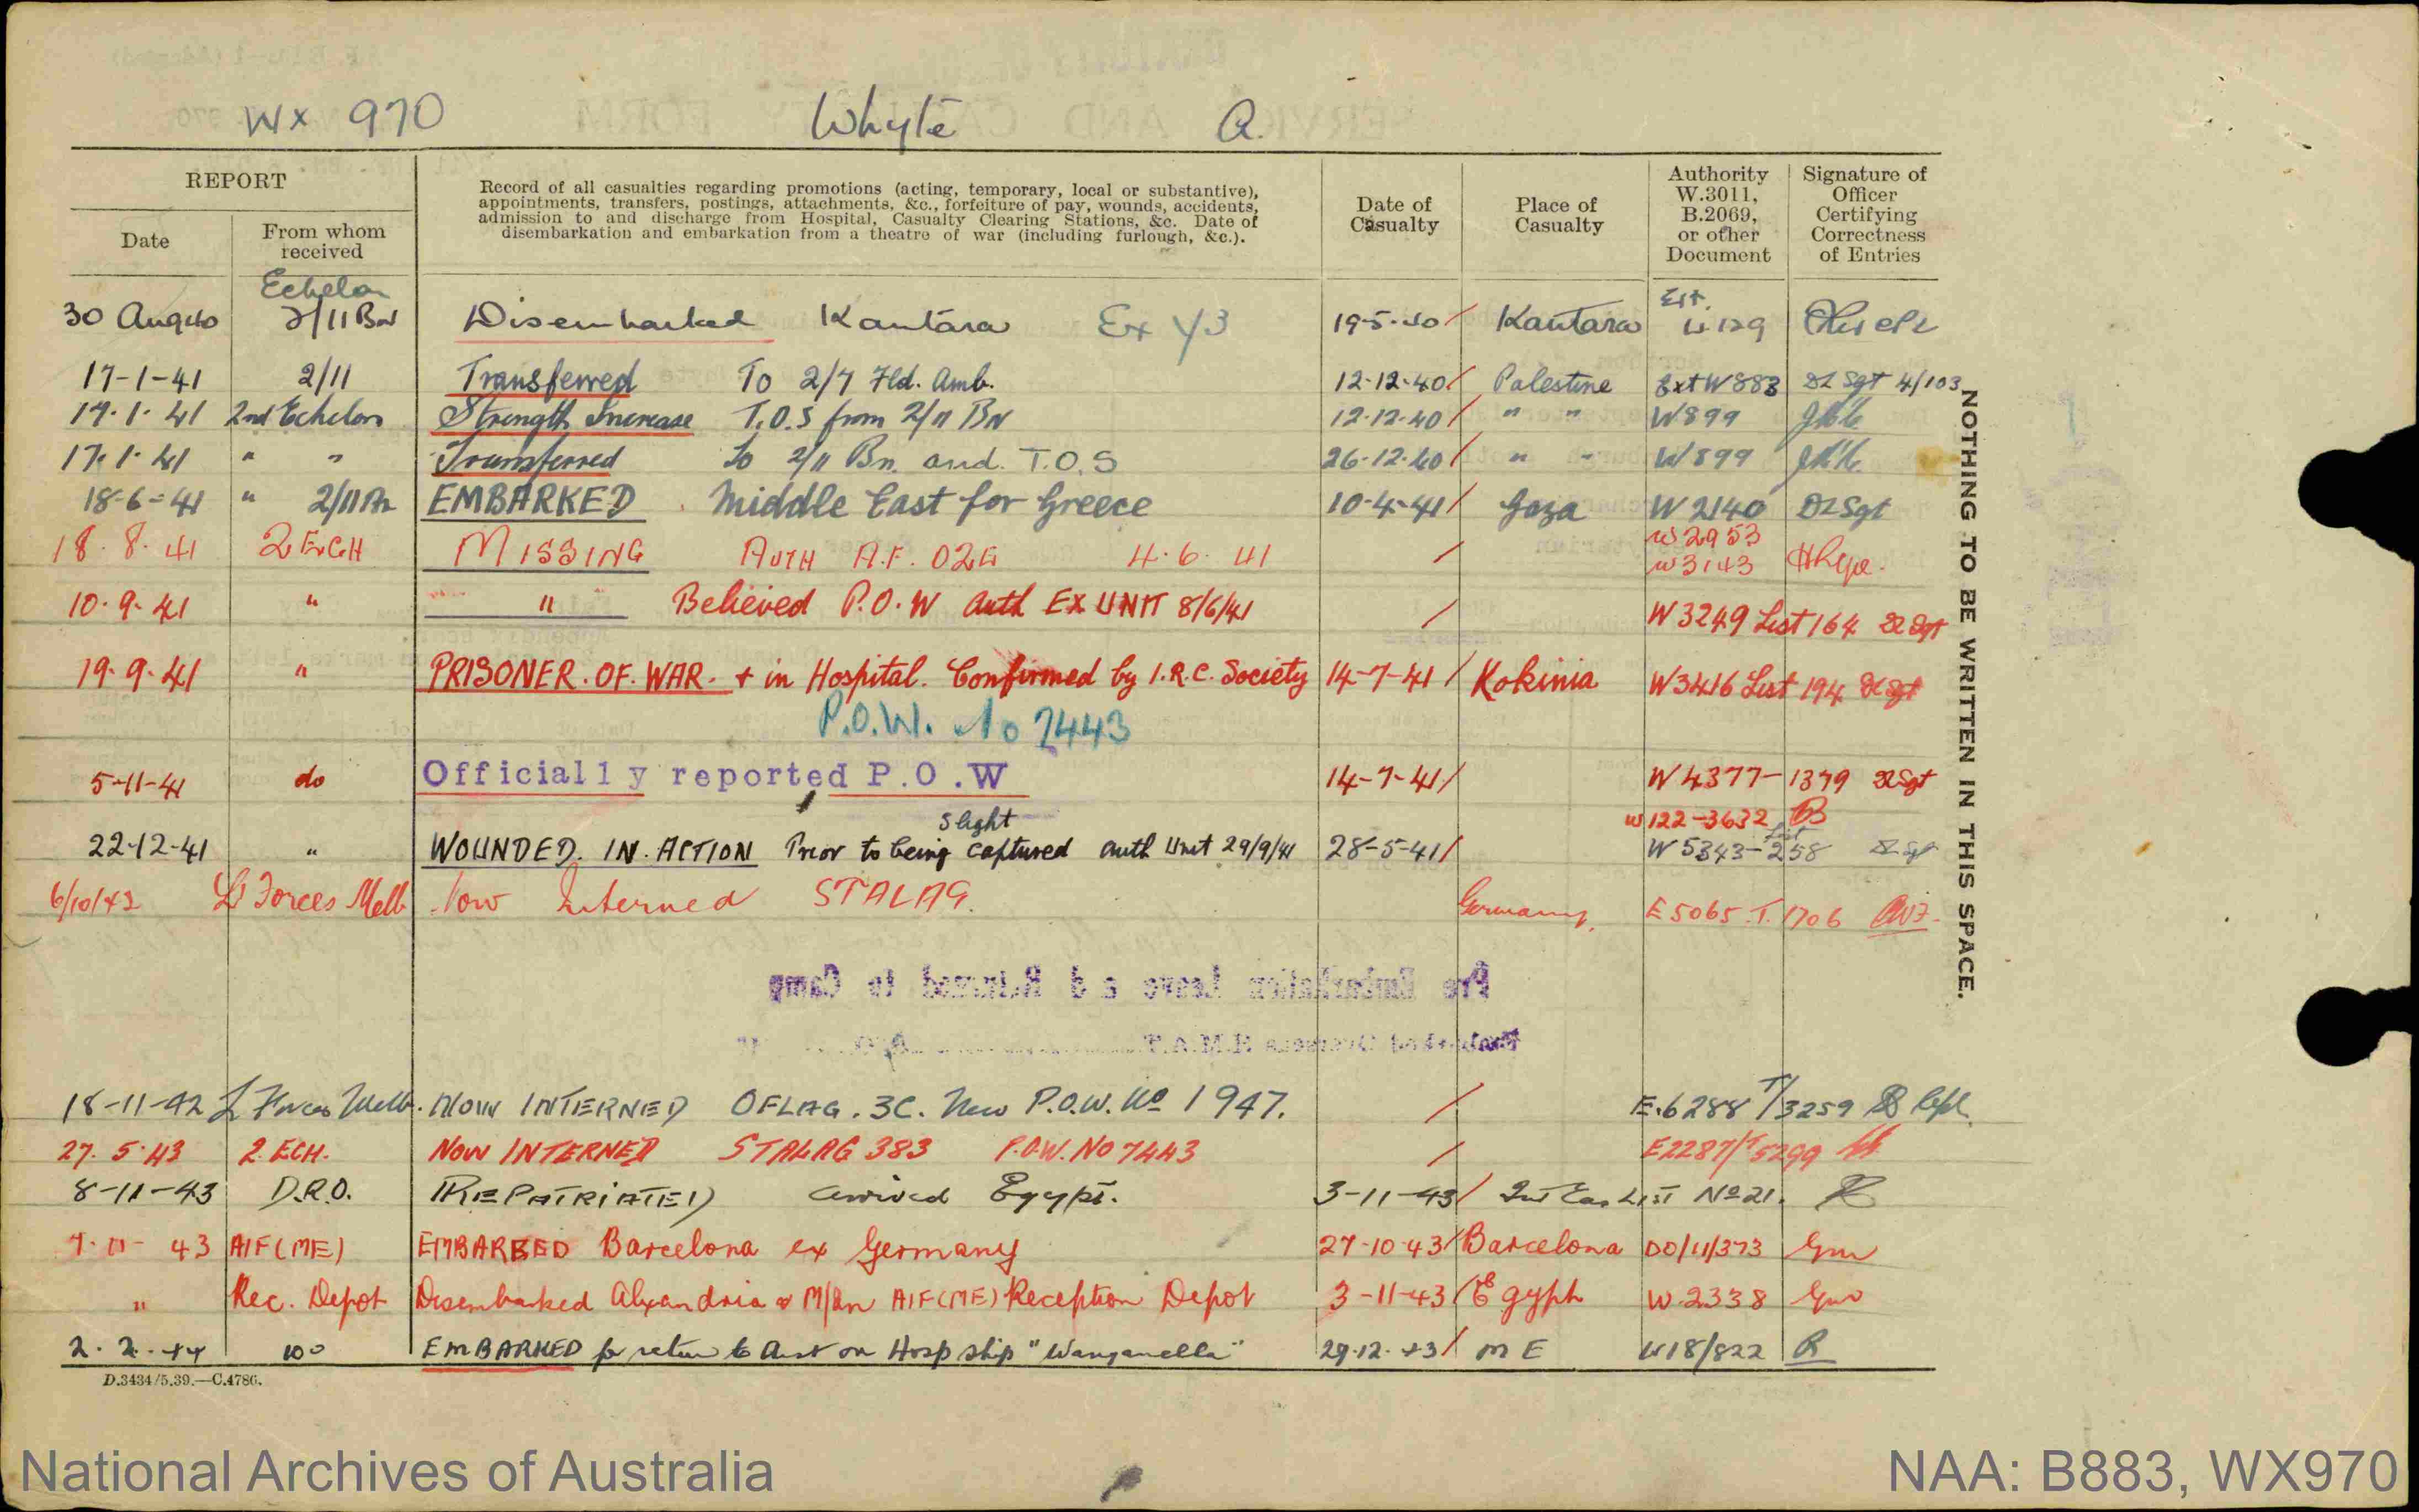 WX 970 Whyte A.
REPORT
Date
From whom received
Record of all casualties regarding promotions (acting, temporary, local or substantive),
appointments, transfers, postings, attachments, &c., forfeiture of pay, wounds, accidents,
admission to and discharge from Hospital, Casualty Clearing Stations, &c. Date of
disembarkation and embarkation from a theatre of war (including furlough, &c.).
Date of Casualty
Place of Casualty
Authority W.3011, B.2069, or other Document
Signature of Officer Certifying Correctness of Entries
Echelon
30 Aug 40 2/11 Bn Disembarked Kantara Ex Y3 19-5-40/ Kantara
17-1-41 2/11 Transferred To 2/7 Fld. Amb. 12-12-40/ Palestine Ext W883 Sgt 4/103
17.1.41 2nd Echelon Strength Increase T.O.S from 2/11 Bn 12-12-40/ " " W899
17.1.41 " " Transferred to 2/11 Bn. and. T.O.S 26-12-40/ " " W899
18-6-41 " 2/11 Bn EMBARKED Middle East for Greece 10-4-41/ Gaza W2140 Sgt
W2953
18.8.41 2 ECH MISSING AUTH A.F. 024 4.6.41 / W3143
10.9.41 " " Believed P.O.W auth EX UNIT 8/6/41 / W3249 List 164 Sgt
19.9.41 " PRISONER.OF.WAR. + in Hospital. Confirmed by I.R.C. Society 14-7-41/ Kokinia W3416 List 194 Sgt
P.O.W. No 7443
5-11-41 do Officially reported P.O.W 14-7-41/ W4377-1379 Sgt
Slight W122-3632
22-12-41 " WOUNDED. IN. ACTION Prior to being captured auth Unit 29/9/41 28-5-41/ W5343-258
6/10/42 L Forces Melb Now Interned STALAG. Germany. E5065 T.1706
18-11-42 L Forces Melb. NOW INTERNED OFLAG. 3C. New P.O.W. No 1947. / E.6288 T/3259
27.5.43 2.ECH. NOW INTERNED STALAG 383 P.O.W. NO 7443 / E2287/T5299
8-11-43 D.R.O. REPATRIATED arrived Egypt. 3-11-43/ List No 21.
7-11-43 AIF(ME) EMBARKED Barcelona ex Germany 27-10-43/ Barcelona DO/11/373
" Rec. Depot Disembarked Alexandria & M/In AIF(ME) Reception Depot 3-11-43/ Egypt W.2338
2.2.44 EMBARKED for return to Aust on Hosp ship "Wanganella" 29.12.43/ M E W18/822
D.3434/5.39.—C.4786.
NOTHING TO BE WRITTEN IN THIS SPACE.
National Archives of Australia
NAA: B883, WX970